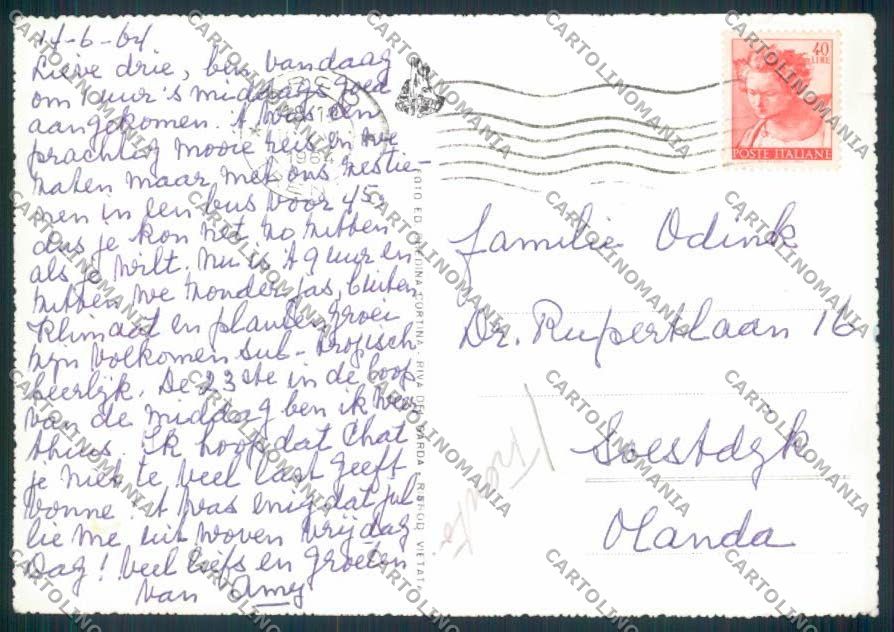 14-6-64
Lieve drie, ben vandaag
om 1 uur 's middags goed
aangekomen. 't Was een
prachtig mooie reis en we
zaten maar met ons zestie-
nen in een bus voor 45,
dus je kon net zo zitten
als je wilt. Nu is 't 9 uur en
zitten we zonder jas, buiten
klimaat en plantengroei
zijn volkomen sub-tropisch
heerlijk. De 23ste in de loop
van de middag ben ik weer
thuis. Ik hoop dat Chat
je niet te veel last geeft
vonne. 't Was enig dat jul
lie me uit woven vrijdag
Dag! Veel liefs en groeten
van Amy
FOTO ED. CORTINA - RIVA DEL GARDA - RIPROD. VIETATA
1964
40
LIRE
POSTE ITALIANE
familie Odink
Dr. Rupertlaan 16
Soestdyk
Olanda
CARTOLINOMANIA